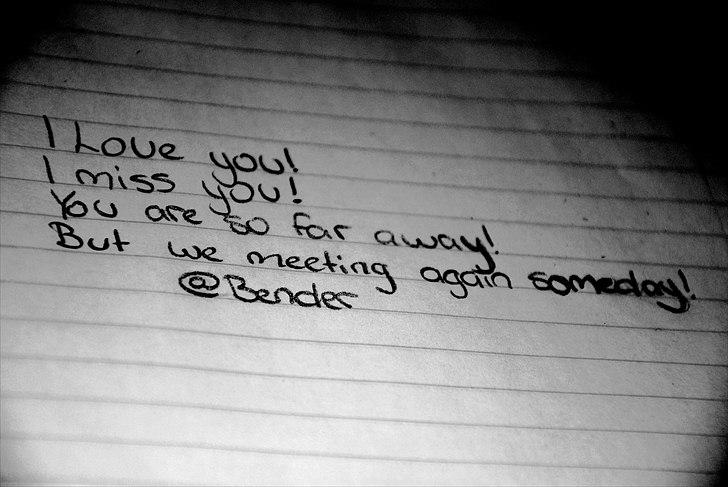 I Love you!
I miss you!
You are so far away!
But we meeting again someday!
@Bender